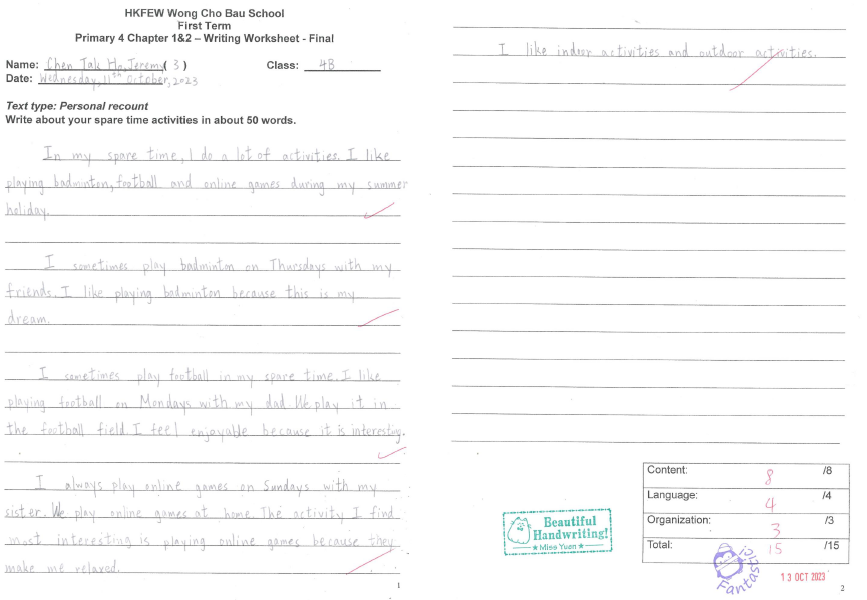 HKFEW Wong Cho Bau School
First Term
Primary 4 Chapter 1&2 – Writing Worksheet - Final
Name: Chen Tak Ho, Jeremy( 3 ) Class: 4B
Date: Wednesday, 11th October, 2023
Text type: Personal recount
Write about your spare time activities in about 50 words.
In my spare time, I do a lot of activities. I like
playing badminton, football and online games during my summer
holiday.
I sometimes play badminton on Thursdays with my
friends. I like playing badminton because this is my
dream.
I sometimes play football in my spare time. I like
playing football on Mondays with my dad. We play it in
the football field. I feel enjoyable because it is interesting.
I always play online games on Sundays with my
sister. We play online games at home. The activity I find
most interesting is playing online games because they
make me relaxed.
1
I like indoor activities and outdoor activities.
Beautiful
Handwriting!
Miss Yuen
Content: 8 /8
Language: 4 /4
Organization: 3 /3
Total: 15 /15
Fantastic
13 OCT 2023
2